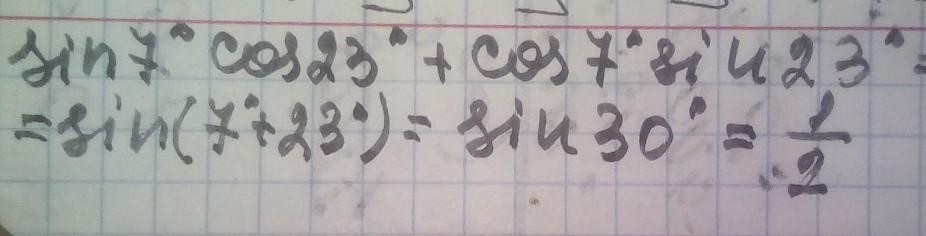 sin7° cos23° + cos7° sin23° =
= sin(7°+23°) = sin30° = 1/2